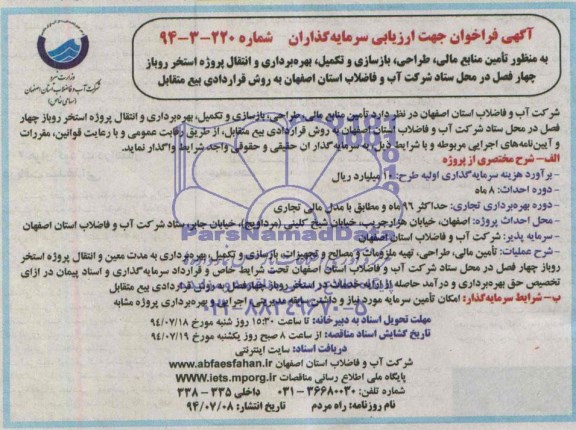 آگهی فراخوان جهت ارزیابی سرمایه‌گذاران شماره ۲۲۰-۳-۹۴
به منظور تأمین منابع مالی، طراحی، بازسازی و تکمیل، بهره‌برداری و انتقال پروژه استخر روباز
چهار فصل در محل ستاد شرکت آب و فاضلاب استان اصفهان به روش قراردادی بیع متقابل
وزارت نیرو
شرکت آب و فاضلاب استان اصفهان
(سهامی خاص)
شرکت آب و فاضلاب استان اصفهان در نظر دارد تأمین منابع مالی، طراحی، بازسازی و تکمیل، بهره‌برداری و انتقال پروژه استخر روباز چهار
فصل در محل ستاد شرکت آب و فاضلاب استان اصفهان به روش قراردادی بیع متقابل، از طریق رقابت عمومی و با رعایت قوانین، مقررات
و آیین‌نامه‌های اجرایی مربوطه و با شرایط ذیل به سرمایه‌گذاران حقیقی و حقوقی واجد شرایط واگذار نماید.
الف- شرح مختصری از پروژه
- برآورد هزینه سرمایه‌گذاری اولیه طرح: ۱۰ میلیارد ریال
- دوره احداث: ۸ ماه
- دوره بهره‌برداری تجاری: حداکثر ۹۶ ماه و مطابق با مدل مالی تجاری
- محل احداث پروژه: اصفهان، خیابان هزارجریب، خیابان شیخ کلینی (مرداویج)، خیابان جابر، ستاد شرکت آب و فاضلاب استان اصفهان
- سرمایه پذیر: شرکت آب و فاضلاب استان اصفهان
- شرح عملیات: تأمین مالی، طراحی، تهیه ملزومات و مصالح و تجهیزات، بازسازی و تکمیل، بهره‌برداری به مدت معین و انتقال پروژه استخر
روباز چهار فصل در محل ستاد شرکت آب و فاضلاب استان اصفهان تحت شرایط خاص و قرارداد سرمایه‌گذاری و اسناد پیمان در ازای
تخصیص حق بهره‌برداری و درآمد حاصله از ارائه خدمات در استخر روباز چهار فصل به روش قراردادی بیع متقابل
ب- شرایط سرمایه‌گذار: امکان تأمین سرمایه مورد نیاز و داشتن سابقه مدیریتی، اجرایی و بهره‌برداری پروژه مشابه
مهلت تحویل اسناد به دبیرخانه: تا ساعت ۱۵:۳۰ روز شنبه مورخ ۹۴/۰۷/۱۸
تاریخ گشایش اسناد مناقصه: از ساعت ۸ صبح روز یکشنبه مورخ ۹۴/۰۷/۱۹
دریافت اسناد: سایت اینترنتی
شرکت آب و فاضلاب استان اصفهان www.abfaesfahan.ir
پایگاه ملی اطلاع رسانی مناقصات WWW.iets.mporg.ir
شماره تلفن: ۳۶۶۸۰۰۳۰-۰۳۱ داخلی ۳۳۵-۳۳۸
نام روزنامه: راه مردم تاریخ انتشار: ۹۴/۰۷/۰۸
ParsNamadData
۰۲۱-۸۸۳۴۹۶۷۰-۵